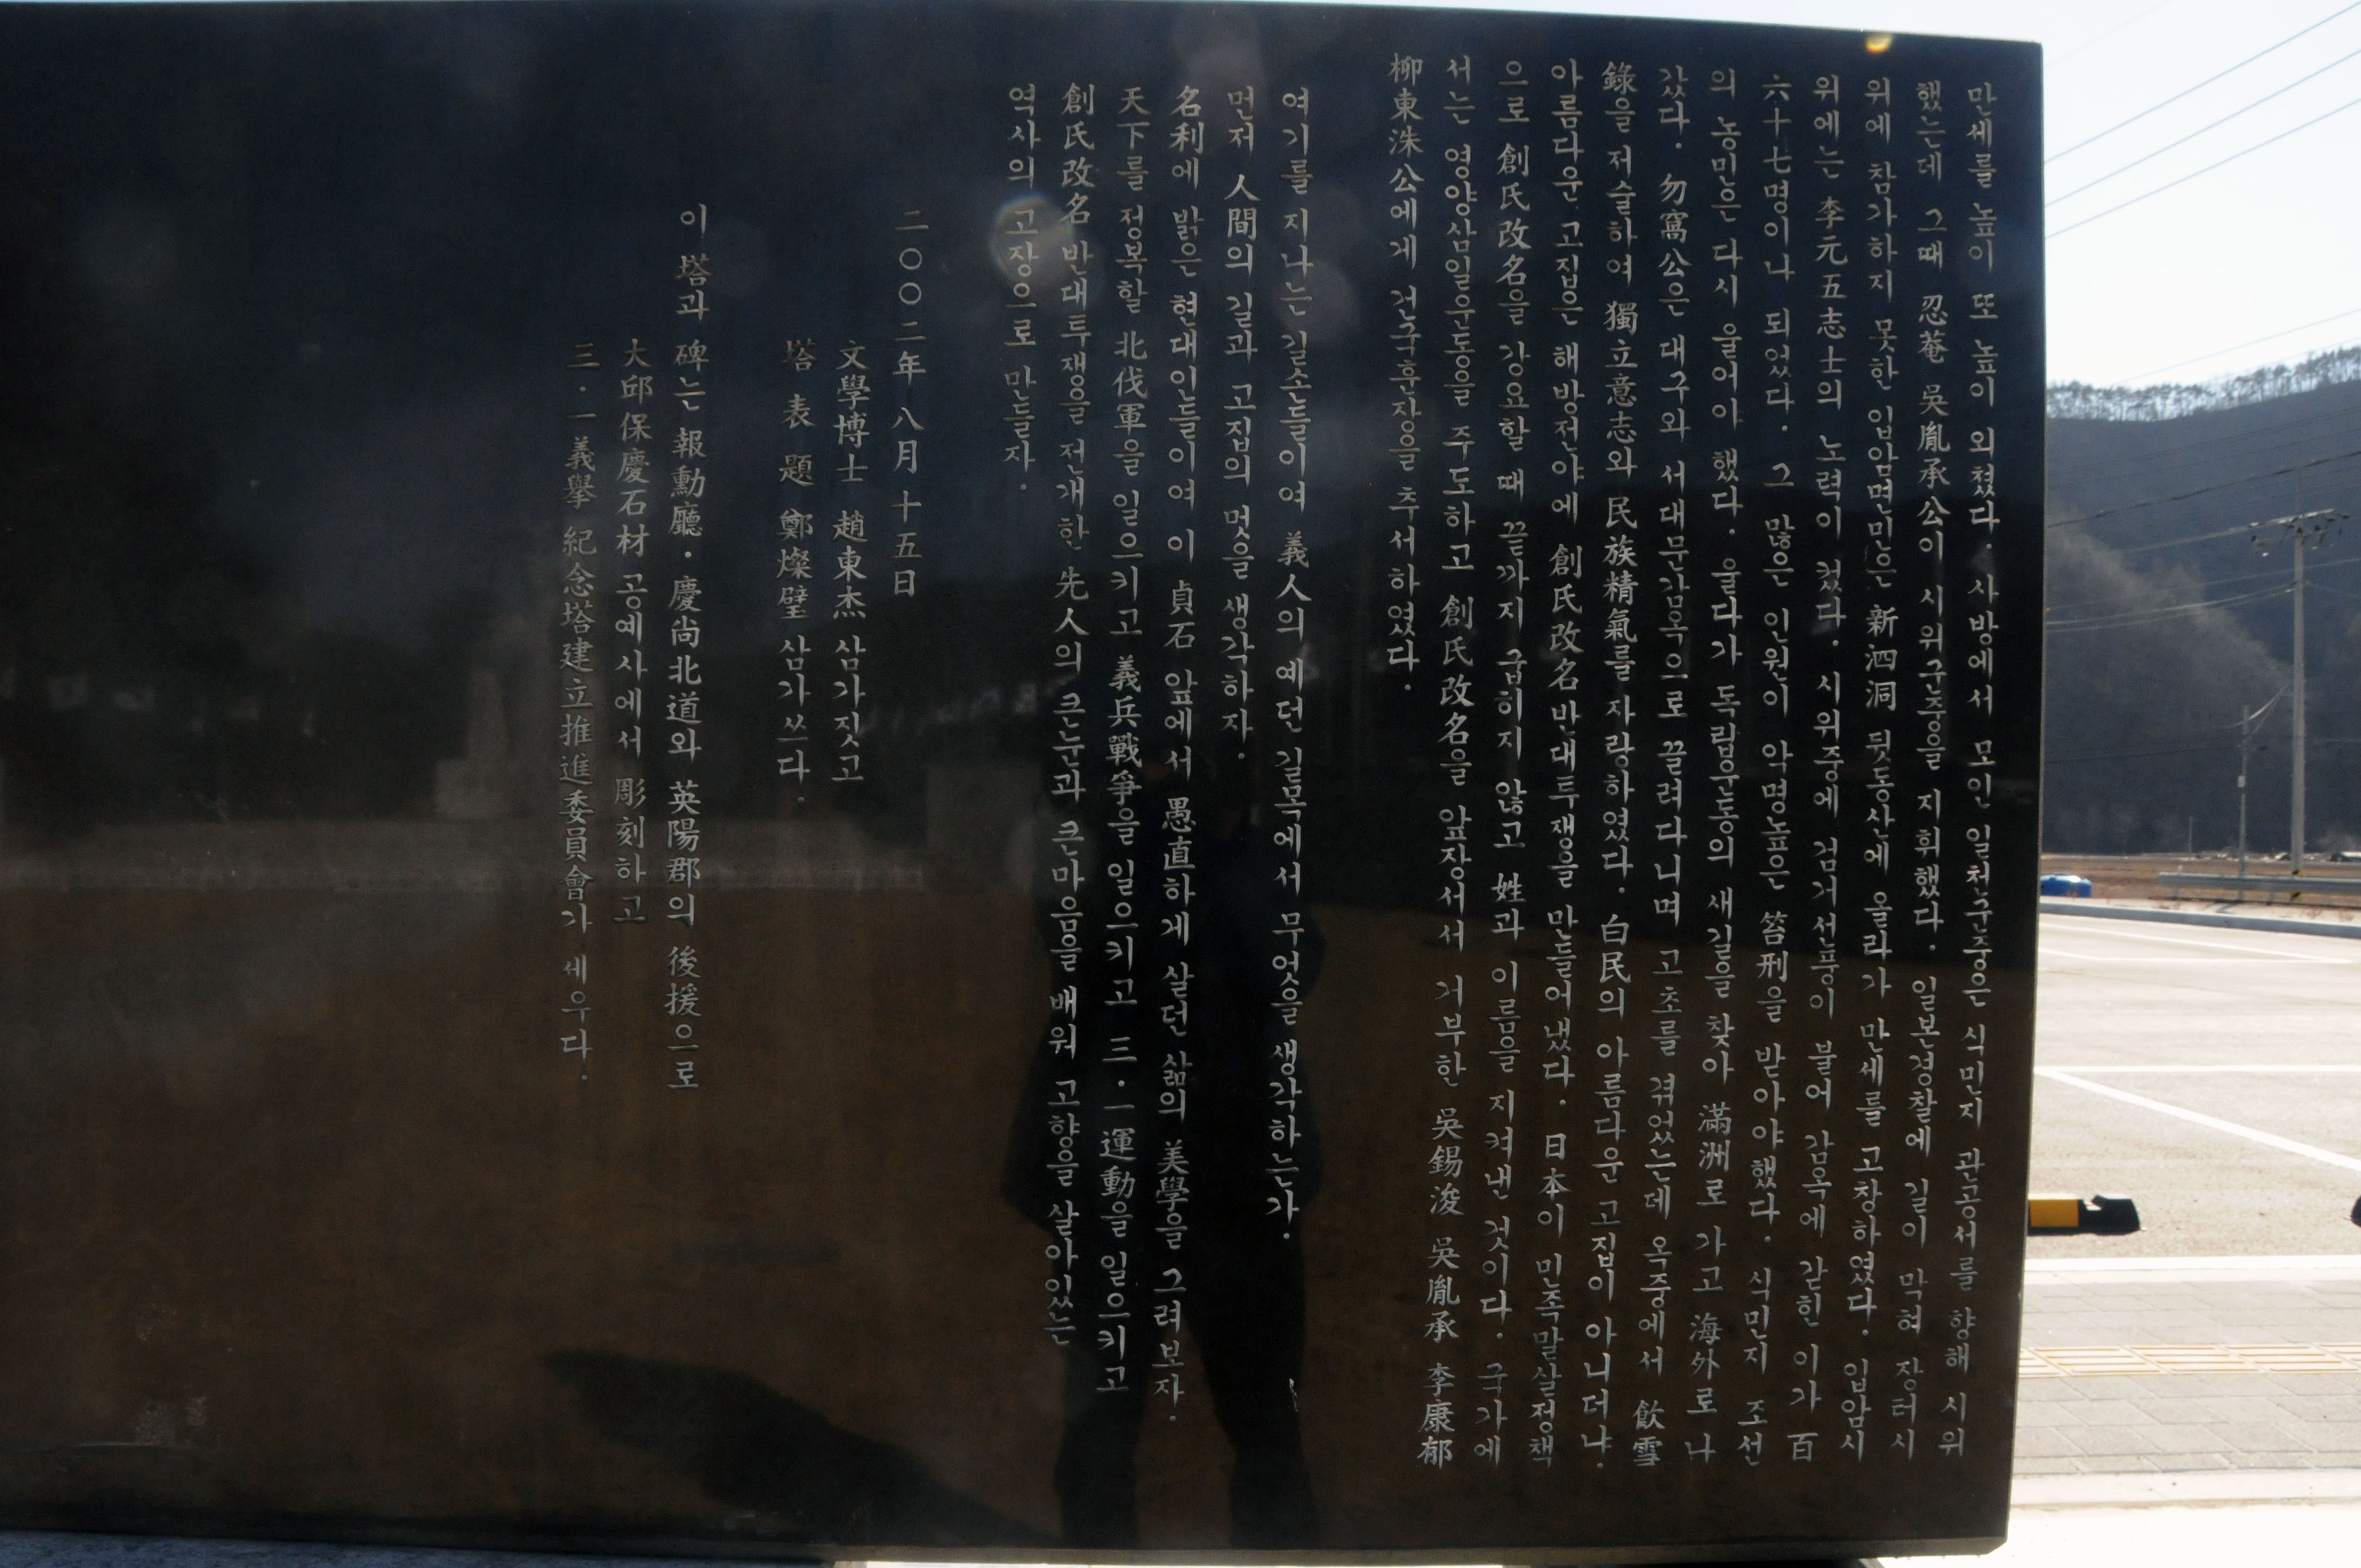 만세를 높이 또 높이 외쳤다. 사방에서 모인 일천군중은 식민지 관공서를 향해 시위
했는데 그때 忍菴 吳胤承公이 시위군중을 지휘했다. 일본경찰에 길이 막혀 장터시
위에 참가하지 못한 입암면민은 新泗洞 뒷동산에 올라가 만세를 고창하였다. 입암시
위에는 李元五志士의 노력이 컸다. 시위중에 검거선풍이 불어 감옥에 갇힌 이가 百
六十七명이나 되었다. 그 많은 인원이 악명높은 笞刑을 받아야 했다. 식민지 조선
의 농민은 다시 울어야 했다. 울다가 독립운동의 새길을 찾아 滿洲로 가고 海外로 나
갔다. 勿窩公은 대구와 서대문감옥으로 끌려다니며 고초를 겪었는데 옥중에서 飮雪
錄을 저술하여 獨立意志와 民族精氣를 자랑하였다. 白民의 아름다운 고집이 아니더냐.
아름다운 고집은 해방전야에 創氏改名 반대투쟁을 만들어냈다. 日本이 민족말살정책
으로 創氏改名을 강요할 때 끝까지 굽히지 않고 姓과 이름을 지켜낸 것이다. 국가에
서는 영양삼일운동을 주도하고 創氏改名을 앞장서서 거부한 吳錫浚 吳胤承 李康郁
柳東洙公에게 건국훈장을 추서하였다.
여기를 지나는 길손들이여 義人의 예던 길목에서 무엇을 생각하는가.
먼저 人間의 길과 고집의 멋을 생각하자.
名利에 밝은 현대인들이여 이 貞石 앞에서 愚直하게 살던 삶의 美學을 그려보자.
天下를 정복할 北伐軍을 일으키고 義兵戰爭을 일으키고 三·一運動을 일으키고
創氏改名 반대투쟁을 전개한 先人의 큰눈과 큰마음을 배워 고향을 살아있는
역사의 고장으로 만들자.
二〇〇二年 八月 十五日
文學博士 趙東杰 삼가짓고
塔表題 鄭燦璧 삼가쓰다.
이 塔과 碑는 報勳廳·慶尙北道와 英陽郡의 後援으로
大邱保慶石材 공예사에서 彫刻하고
三·一義擧 紀念塔建立推進委員會가 세우다.